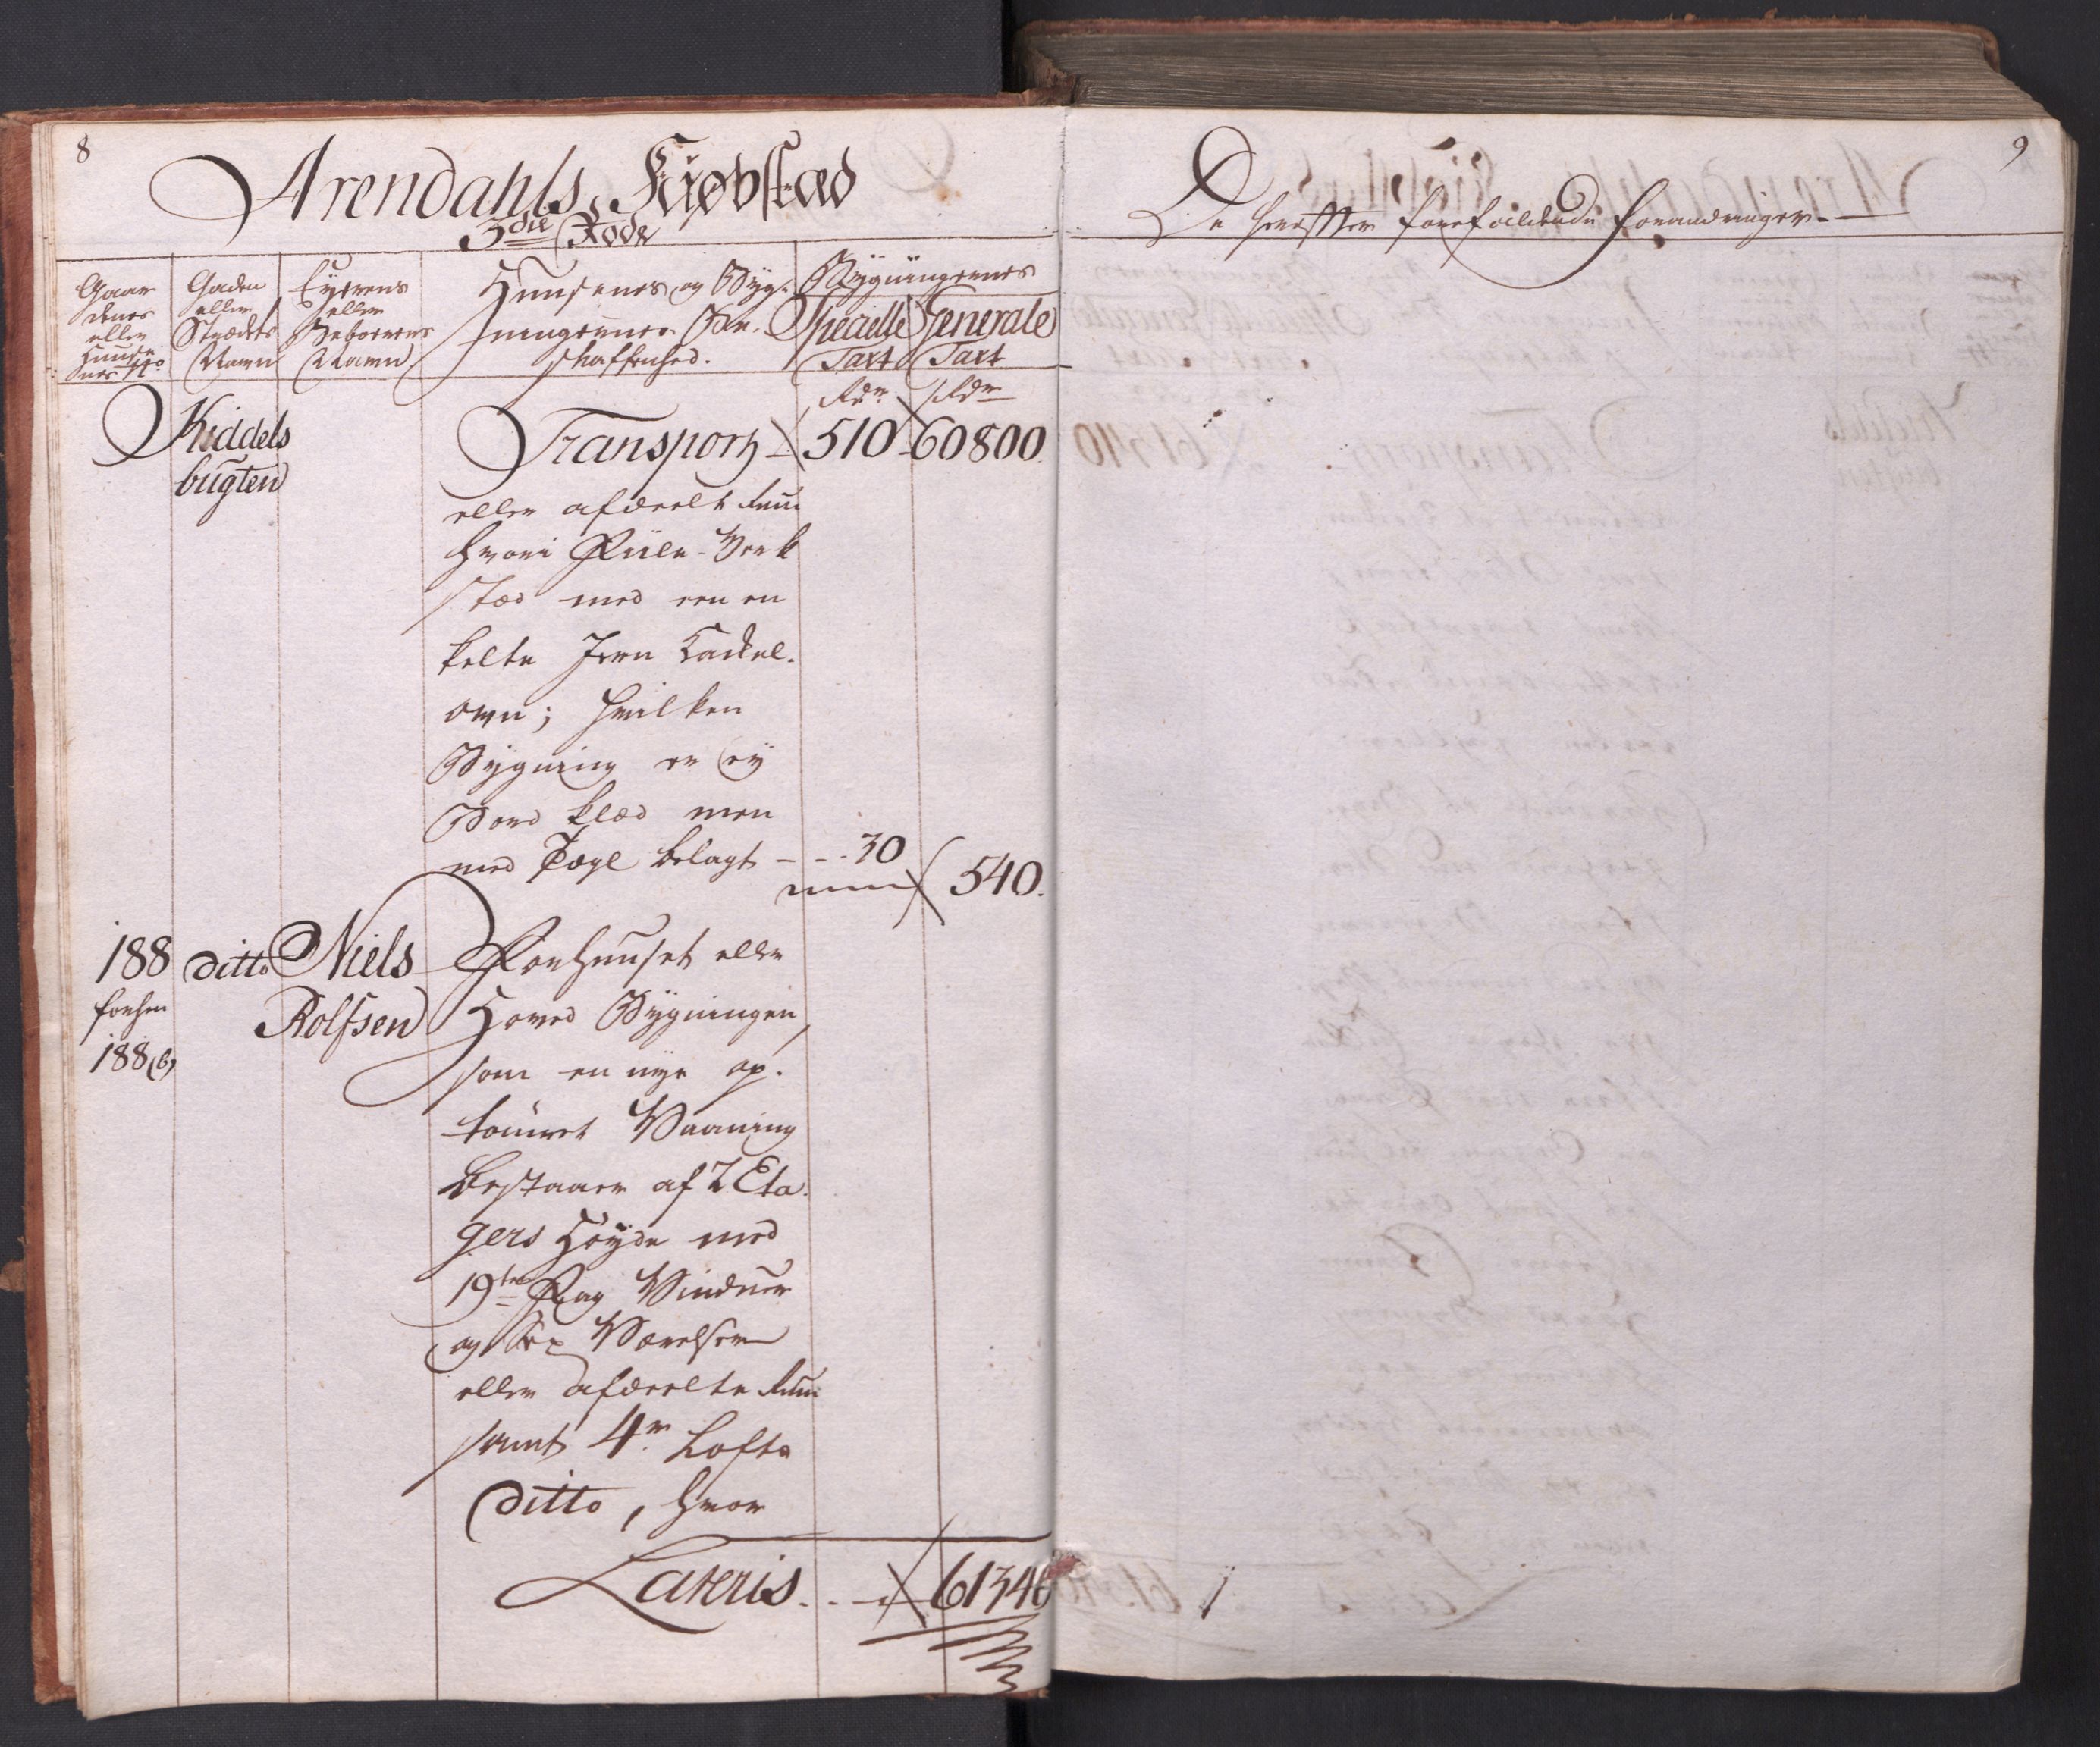 8
Arendahls Kiøbstæd
3die Rode
Gaar
denes
eller
Huuse
nes No
Gaden
eller
Strædets
Navn
Eyerens
eller
Beboerens
Navn
Huusenes og Byg-
ningernes Be-
skaffenhed.
Bygningernes
Specielle
Taxt
Generale
Taxt
Rdr
Rdr
Kiddels
bugten
Transport 510 60800
eller afdeelt Rum
hvori Fiile-Verk
stæd med een en
kelte Jern Kackel-
ovn; hvilken
Bygning er ey
Bord klæd men
med Tægl belagt - - 30
540.
188
forhen
188(b)
ditto
Niels
Rolfsen
Forhuuset eller
Hoved Bygningen,
som en nye op-
Vaaning
bestaaer af 2 Eta-
gers Høyde med
19ten Fag Vinduer
og Sex Værelser
eller afdeelte Rum
samt 4re Lofts
ditto, hvor
Lateris. . - 61340
9
De herefter forefaldende Forandringer.